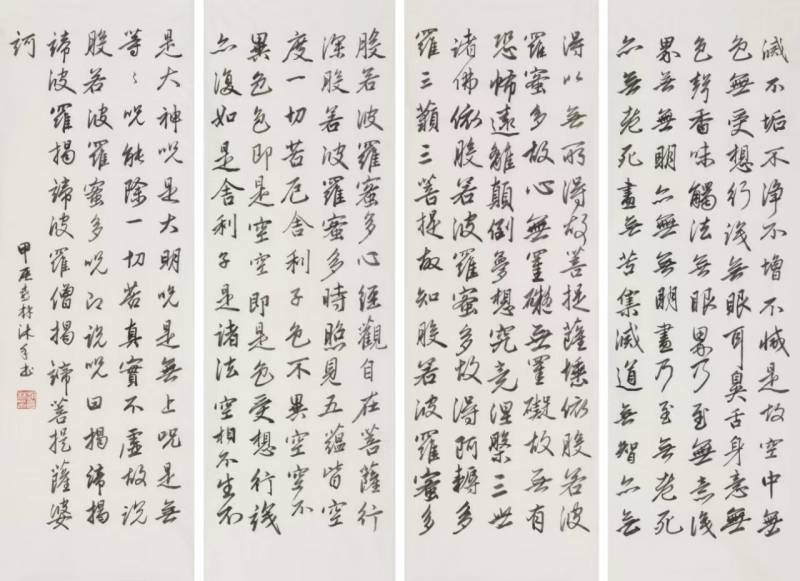 般若波羅蜜多心經觀自在菩薩行
深般若波羅蜜多時照見五蘊皆空
度一切苦厄舍利子色不異空空不
異色色即是空空即是色受想行識
亦復如是舍利子是諸法空相不生不
滅不垢不淨不增不減是故空中無
色無受想行識無眼耳鼻舌身意無
色聲香味觸法無眼界乃至無意識
界無無明亦無無明盡乃至無老死
亦無老死盡無苦集滅道無智亦無
得以無所得故菩提薩埵依般若波
羅蜜多故心無罣礙無罣礙故無有
恐怖遠離顛倒夢想究竟涅槃三世
諸佛依般若波羅蜜多故得阿耨多
羅三藐三菩提故知般若波羅蜜多
是大神呪是大明呪是無上呪是無
等〻呪能除一切苦真實不虛故說
般若波羅蜜多呪即說呪曰揭諦揭
諦波羅揭諦波羅僧揭諦菩提薩婆
訶
甲辰沐手書